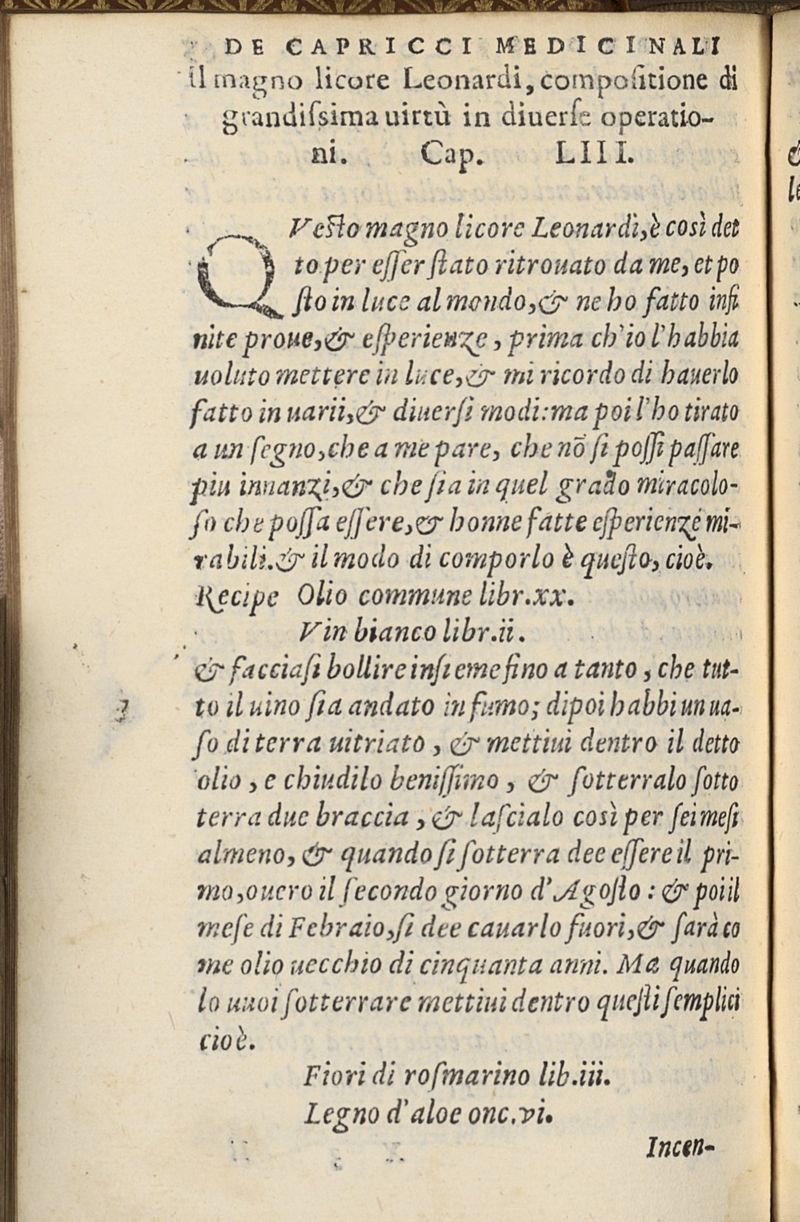 DE CAPRICCI MEDICINALI
il magno licore Leonardi, compoſitione di
grandiſsima uirtù in diuerſe operatio-
ni. Cap. LIII.
QVeſto magno licore Leonardi, è così det
to per eſſer ſtato ritrouato da me, et po
ſto in luce al mondo, & ne ho fatto infi
nite proue, & eſperienze, prima ch'io l'habbia
uoluto mettere in luce, & mi ricordo di hauerlo
fatto in uarii, & diuerſi modi: ma poi l'ho tirato
a un ſegno, che a me pare, che nō ſi poſſi paſſare
piu innanzi, & che ſia in quel grado miracolo-
ſo che poſſa eſſere, & honne fatte eſperienze mi-
rabili. & il modo di comporlo è queſto, cioè.
Recipe Olio commune libr.xx.
Vin bianco libr.ii.
& facciaſi bollire inſieme fino a tanto, che tut-
to il uino ſia andato in fumo; dipoi habbi un ua-
ſo di terra uitriato, & mettiui dentro il detto
olio, e chiudilo beniſſimo, & ſotterralo ſotto
terra due braccia, & laſcialo così per ſei meſi
almeno, & quando ſi ſotterra dee eſſere il pri-
mo, ouero il ſecondo giorno d'Agoſto: & poi il
meſe di Febraio, ſi dee cauarlo fuori, & ſarà co
me olio uecchio di cinquanta anni. Ma quando
lo uuoi ſotterrare mettiui dentro queſti ſemplici
cioè.
Fiori di roſmarino lib.iii.
Legno d'aloe onc.vi.
Incen-